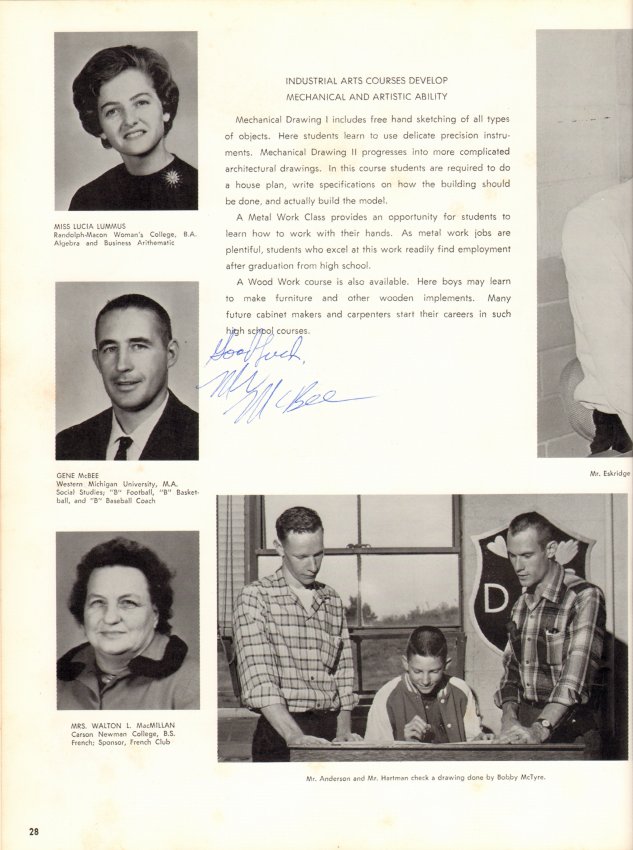 INDUSTRIAL ARTS COURSES DEVELOP
MECHANICAL AND ARTISTIC ABILITY
Mechanical Drawing I includes free hand sketching of all types
of objects. Here students learn to use delicate precision instru-
ments. Mechanical Drawing II progresses into more complicated
architectural drawings. In this course students are required to do
a house plan, write specifications on how the building should
be done, and actually build the model.
A Metal Work Class provides an opportunity for students to
learn how to work with their hands. As metal work jobs are
plentiful, students who excel at this work readily find employment
after graduation from high school.
A Wood Work course is also available. Here boys may learn
to make furniture and other wooden implements. Many
future cabinet makers and carpenters start their careers in such
high school courses.
Good luck,
Mr McBee
MISS LUCIA LUMMUS
Randolph-Macon Woman's College, B.A.
Algebra and Business Arithmatic
GENE McBEE
Western Michigan University, M.A.
Social Studies; "B" Football, "B" Basket-
ball, and "B" Baseball Coach
MRS. WALTON L. MacMILLAN
Carson Newman College, B.S.
French; Sponsor, French Club
Mr. Eskridge
D
Mr. Anderson and Mr. Hartman check a drawing done by Bobby McTyre.
28